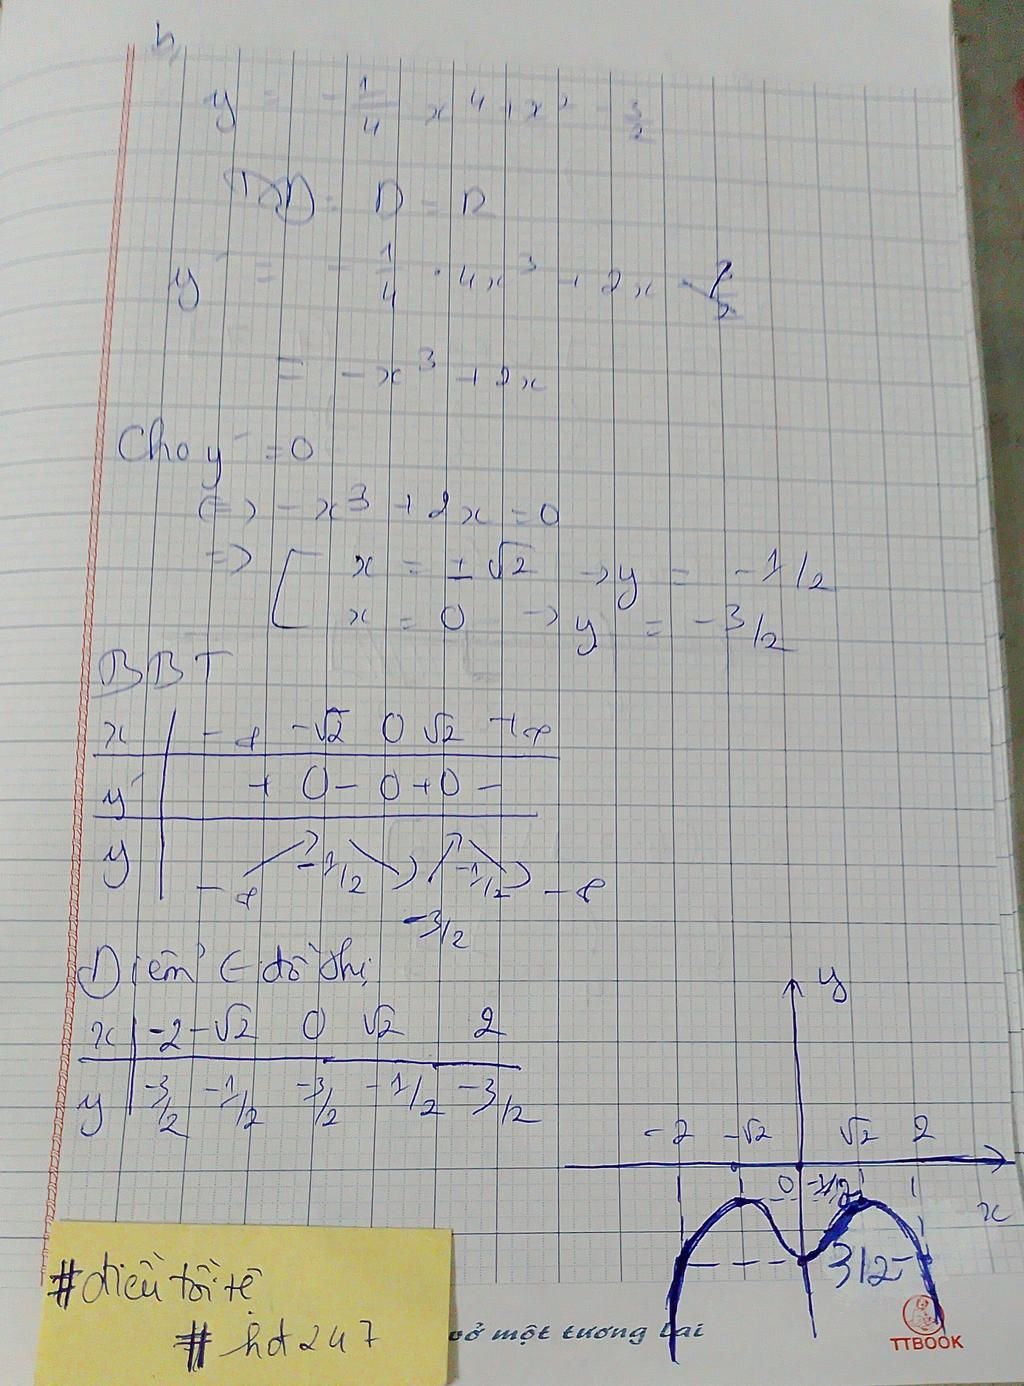 h,
y = -1/4 x^4 + x^2 - 3/2
TXD: D = R
y' = -1/4 . 4x^3 + 2x
= -x^3 + 2x
Cho y' = 0
<=> -x^3 + 2x = 0
=> [ x = ±√2 → y = -1/2
x = 0 → y = -3/2
BBT
x -∞ -√2 0 √2 +∞
y' + 0 - 0 + 0 -
y -∞ -1/2 -3/2 -1/2 -∞
Điểm ∈ đồ thị
x -2 -√2 0 √2 2
y -3/2 -1/2 -3/2 -1/2 -3/2
y
-2 -√2 √2 2
0 -1/2
x
3/2
#điều tồi tệ
#hd247
vở một tương lai
TTBOOK